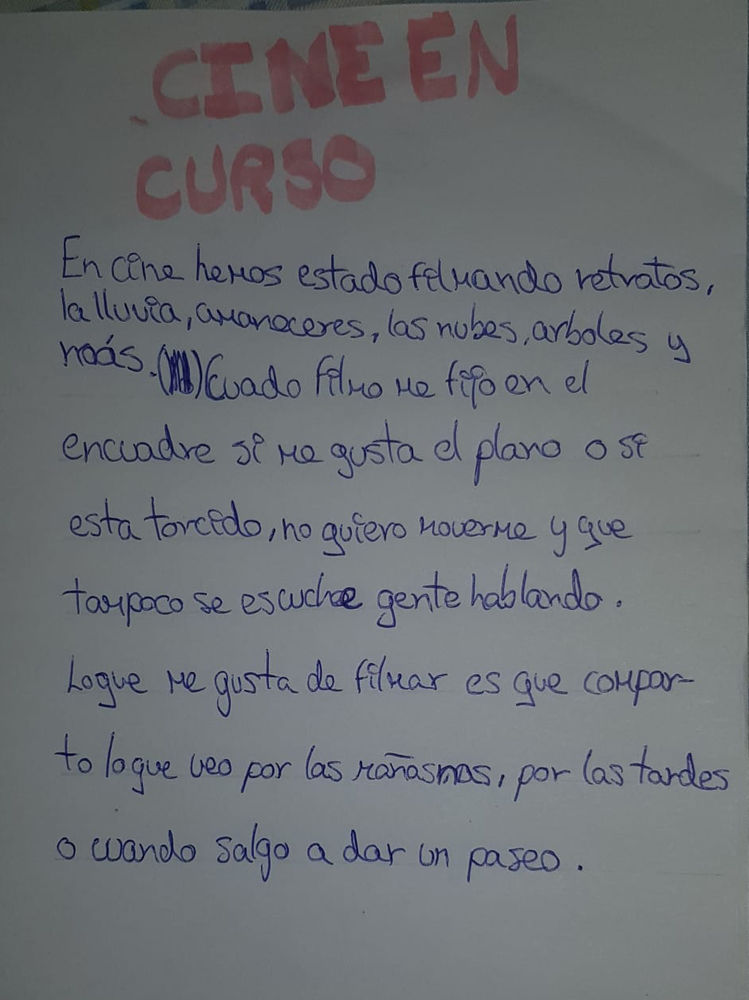 CINE EN
CURSO
En cine hemos estado filmando retratos,
la lluvia, amanoceres, las nubes, arboles y
más. Cuado filmo me fijo en el
encuadre si me gusta el plano o si
esta torcido, no quiero moverme y que
tampoco se escuche gente hablando.
Loque me gusta de filmar es que compar-
to loque veo por las mañasnas, por las tardes
o cuando salgo a dar un paseo.